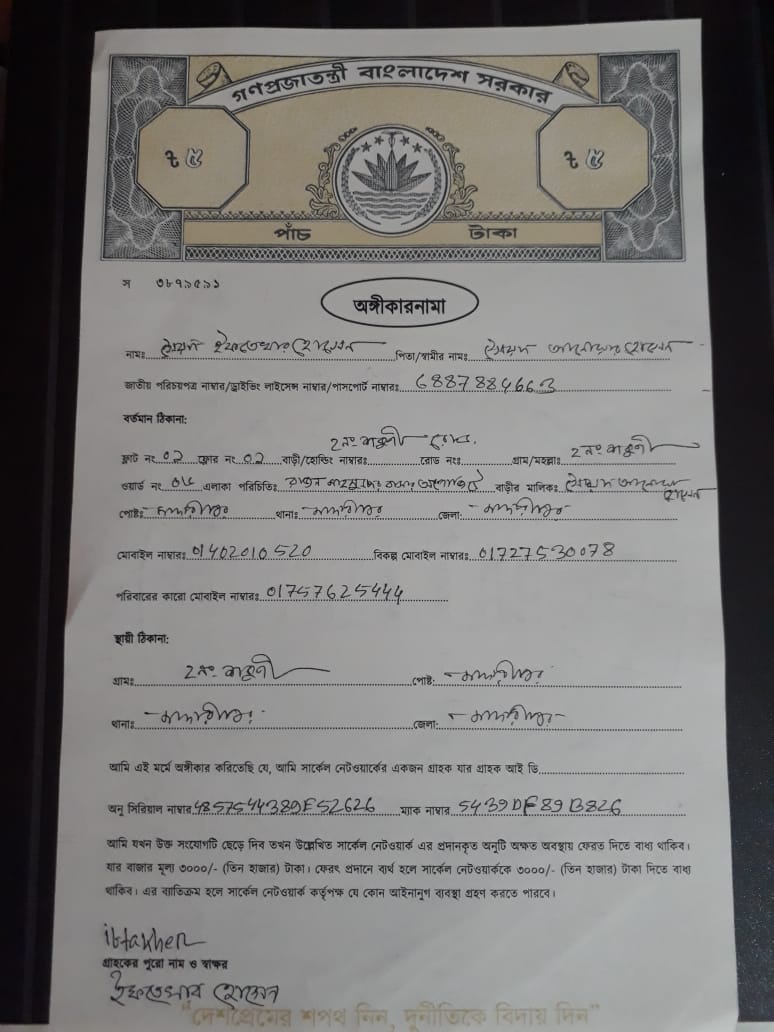 গণপ্রজাতন্ত্রী বাংলাদেশ সরকার
৳ ৫ ৳ ৫
পাঁচ টাকা
স ৩৮৭৯৫৯১
অঙ্গীকারনামা
নামঃ সৈয়দ ইফতেখার হোসেন পিতা/স্বামীর নামঃ সৈয়দ আনোয়ার হোসেন
জাতীয় পরিচয়পত্র নাম্বার/ড্রাইভিং লাইসেন্স নাম্বার/পাসপোর্ট নাম্বারঃ 6887884663
বর্তমান ঠিকানা:
ফ্লাট নং ০২ ফ্লোর নং ০২ বাড়ী/হোল্ডিং নাম্বারঃ ২নং রোড নংঃ গ্রাম/মহল্লাঃ ২নং
ওয়ার্ড নং ০৬ এলাকা পরিচিতিঃ বাড়ীর মালিকঃ সৈয়দ আনোয়ার হোসেন
পোষ্টঃ মাদারীপুর থানাঃ মাদারীপুর জেলা: মাদারীপুর
মোবাইল নাম্বারঃ 01402010520 বিকল্প মোবাইল নাম্বারঃ 01727530078
পরিবারের কারো মোবাইল নাম্বারঃ 01757625444
স্থায়ী ঠিকানা:
গ্রামঃ ২নং পোষ্ট: মাদারীপুর
থানাঃ মাদারীপুর জেলা: মাদারীপুর
আমি এই মর্মে অঙ্গীকার করিতেছি যে, আমি সার্কেল নেটওয়ার্কের একজন গ্রাহক যার গ্রাহক আই ডি
অনু সিরিয়াল নাম্বার 4857544389E52626 ম্যাক নাম্বার 5439DF89B826
আমি যখন উক্ত সংযোগটি ছেড়ে দিব তখন উল্লেখিত সার্কেল নেটওয়ার্ক এর প্রদানকৃত অনুটি অক্ষত অবস্থায় ফেরত দিতে বাধ্য থাকিব।
যার বাজার মূল্য ৩০০০/- (তিন হাজার) টাকা। ফেরৎ প্রদানে ব্যর্থ হলে সার্কেল নেটওয়ার্ককে ৩০০০/- (তিন হাজার) টাকা দিতে বাধ্য
থাকিব। এর ব্যতিক্রম হলে সার্কেল নেটওয়ার্ক কর্তৃপক্ষ যে কোন আইনানুগ ব্যবস্থা গ্রহণ করতে পারবে।
iftakher
গ্রাহকের পুরো নাম ও স্বাক্ষর
ইফতেখার হোসেন
"দেশপ্রেমের শপথ নিন, দুর্নীতিকে বিদায় দিন"